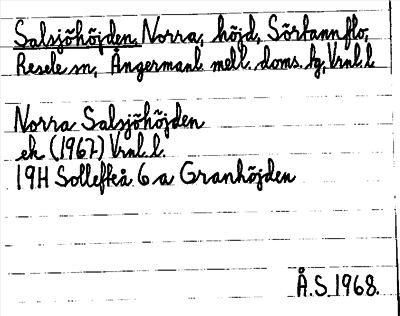 Salsjöhöjden, Norra, höjd, Sörtannflo,
Resele sn, Ångermanl. mell. doms. tg, Vrnl. l
Norra Salsjöhöjden
ek (1967) Vrnl. l.
19H Sollefteå 6 a Granhöjden
Å.S. 1968.